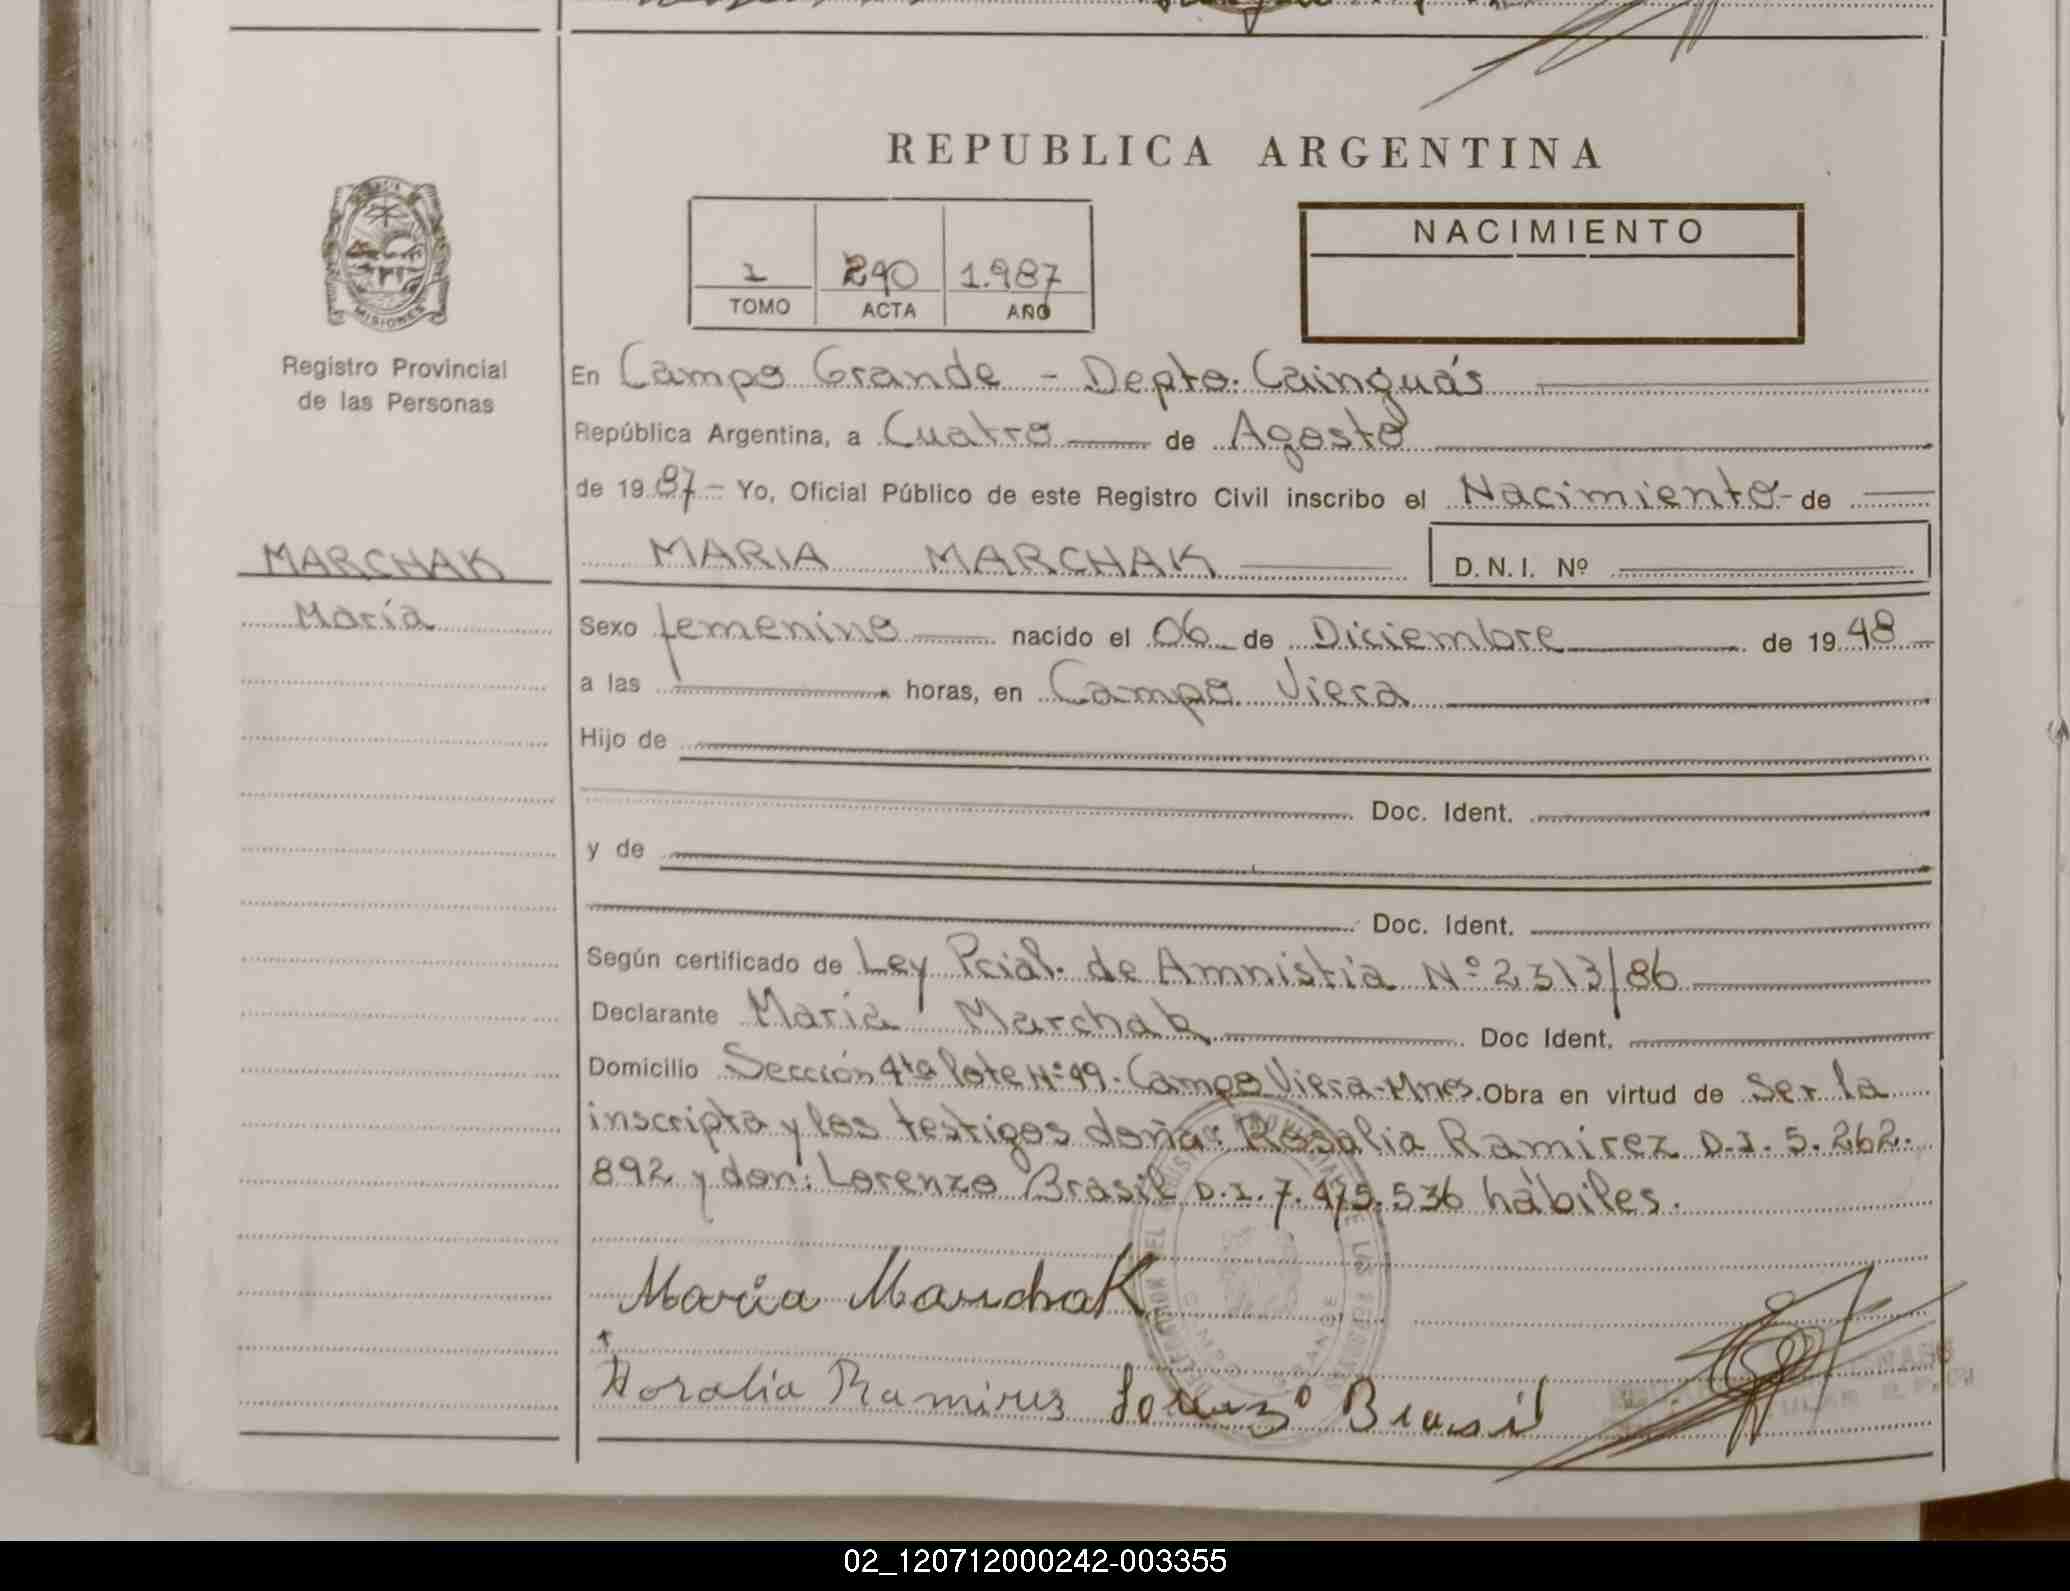 REPUBLICA ARGENTINA
NACIMIENTO
1 290 1.987
TOMO ACTA AÑO
MISIONES
Registro Provincial
de las Personas
En Campo Grande - Depto. Cainguás
República Argentina, a Cuatro de Agosto
de 1987 - Yo, Oficial Público de este Registro Civil inscribo el Nacimiento - de
MARCHAK
MARIA MARCHAK D.N.I. Nº
María
Sexo femenino nacido el 06 de Diciembre de 1948
a las horas, en Campo Viera
Hijo de
Doc. Ident.
y de
Doc. Ident.
Según certificado de Ley Pcial. de Amnistía Nº 2313/86
Declarante María Marchak Doc Ident.
Domicilio Sección 4ta lote Nº 49. Campo Viera - Mnes. Obra en virtud de Ser la
inscripta y los testigos doña: Rosalia Ramírez D.I. 5.262.
892 y don: Lorenzo Brasil D.I. 7.475.536 hábiles.
María Marchak
Roralia Ramirez Lorenzo Brasil
02_120712000242-003355